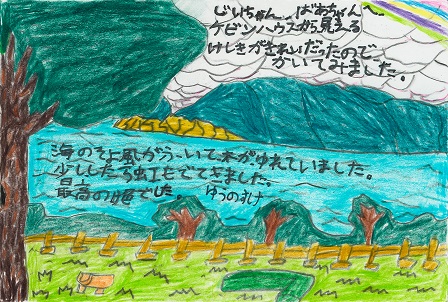 じいちゃん、ばあちゃんへ
ケビンハウスから見える
けしきがきれいだったので
かいてみました。
海のそよ風がふいて木がゆれていました。
少ししたら虹もでてきました。
最高の通でした。
ゆうのすけ